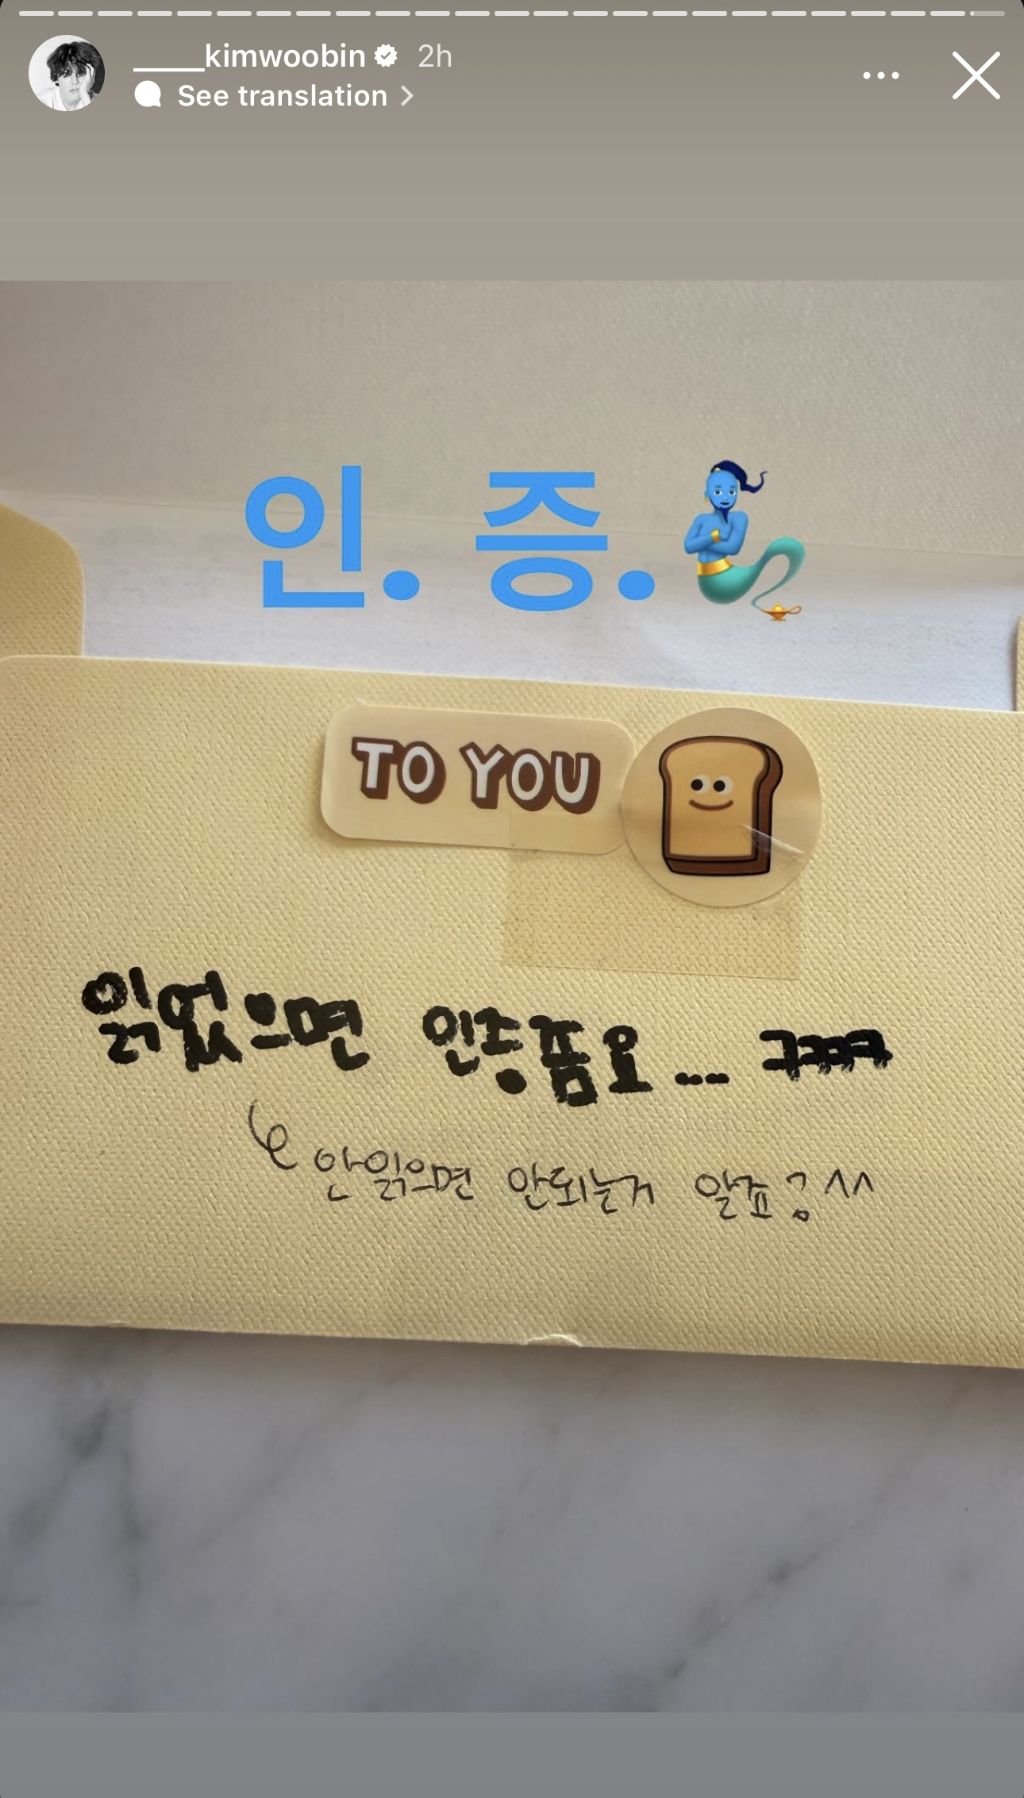 ____kimwoobin 2h
See translation
인. 증.
TO YOU
읽었으면 ... ㅋㅋㅋㅋ
안읽으면 안되는거 알죠?^^